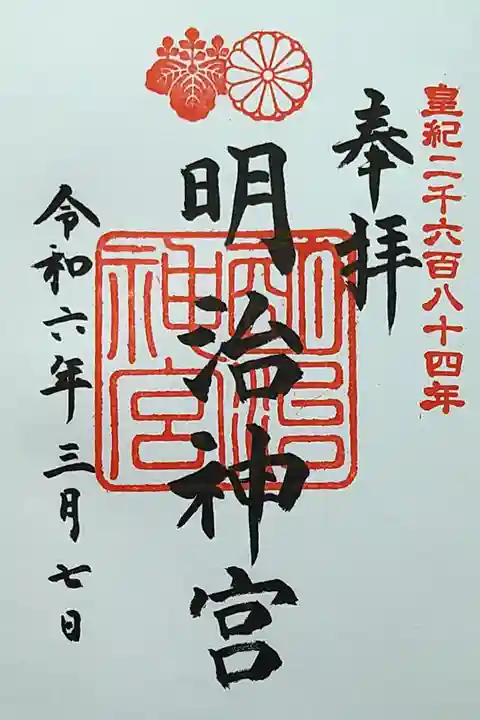 皇紀二千六百八十四年
奉拝
明治神宮
明治
神宮
令和六年三月七日